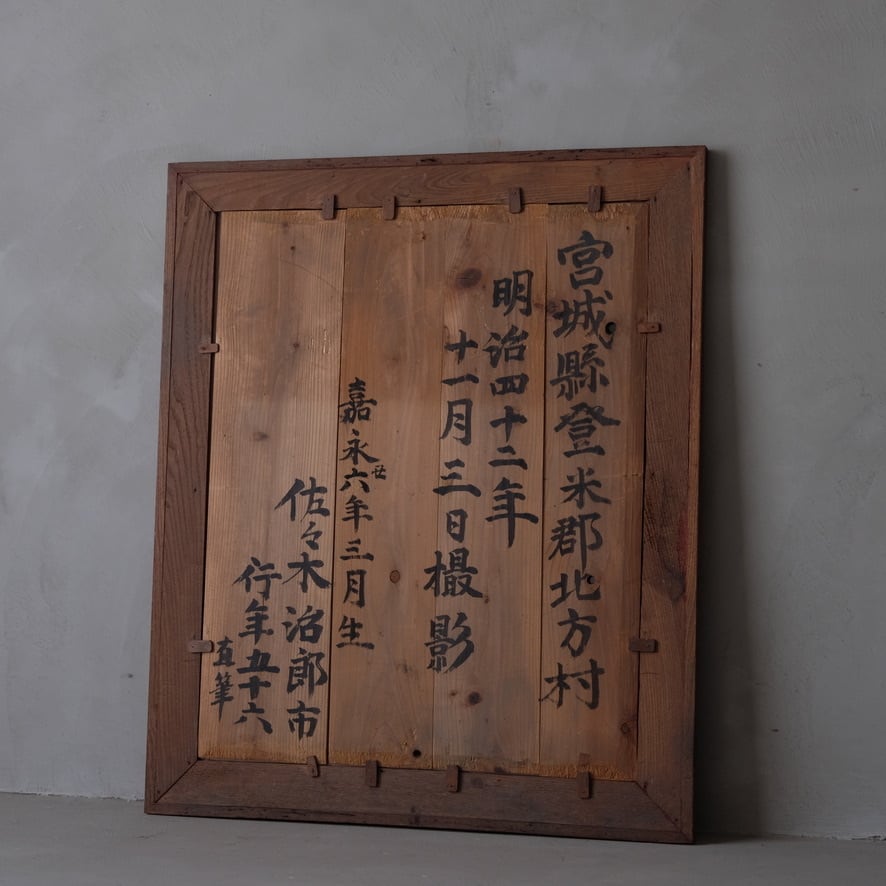 宮城縣登米郡北方村
明治四十二年
十一月三日撮影
嘉永六年三月生
佐々木治郎市
行年五十六
直筆